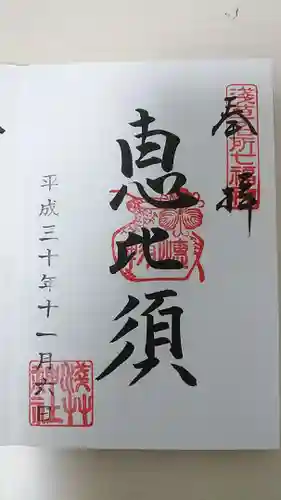 奉拝
浅草名所七福神
恵比須
平成三十年十一月六日
浅草神社